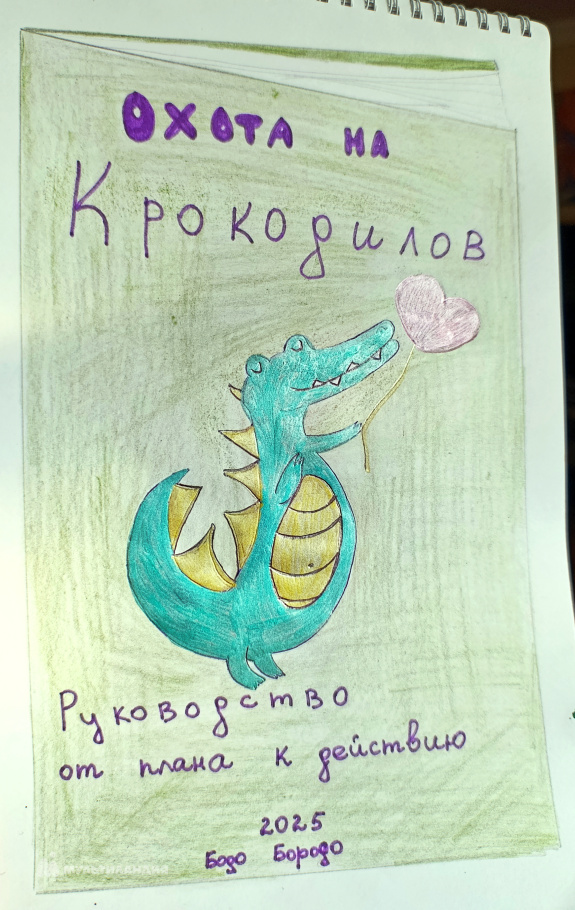 Охота на
Крокодилов
Руководство
от плана к действию
2025
Бодо Бородо